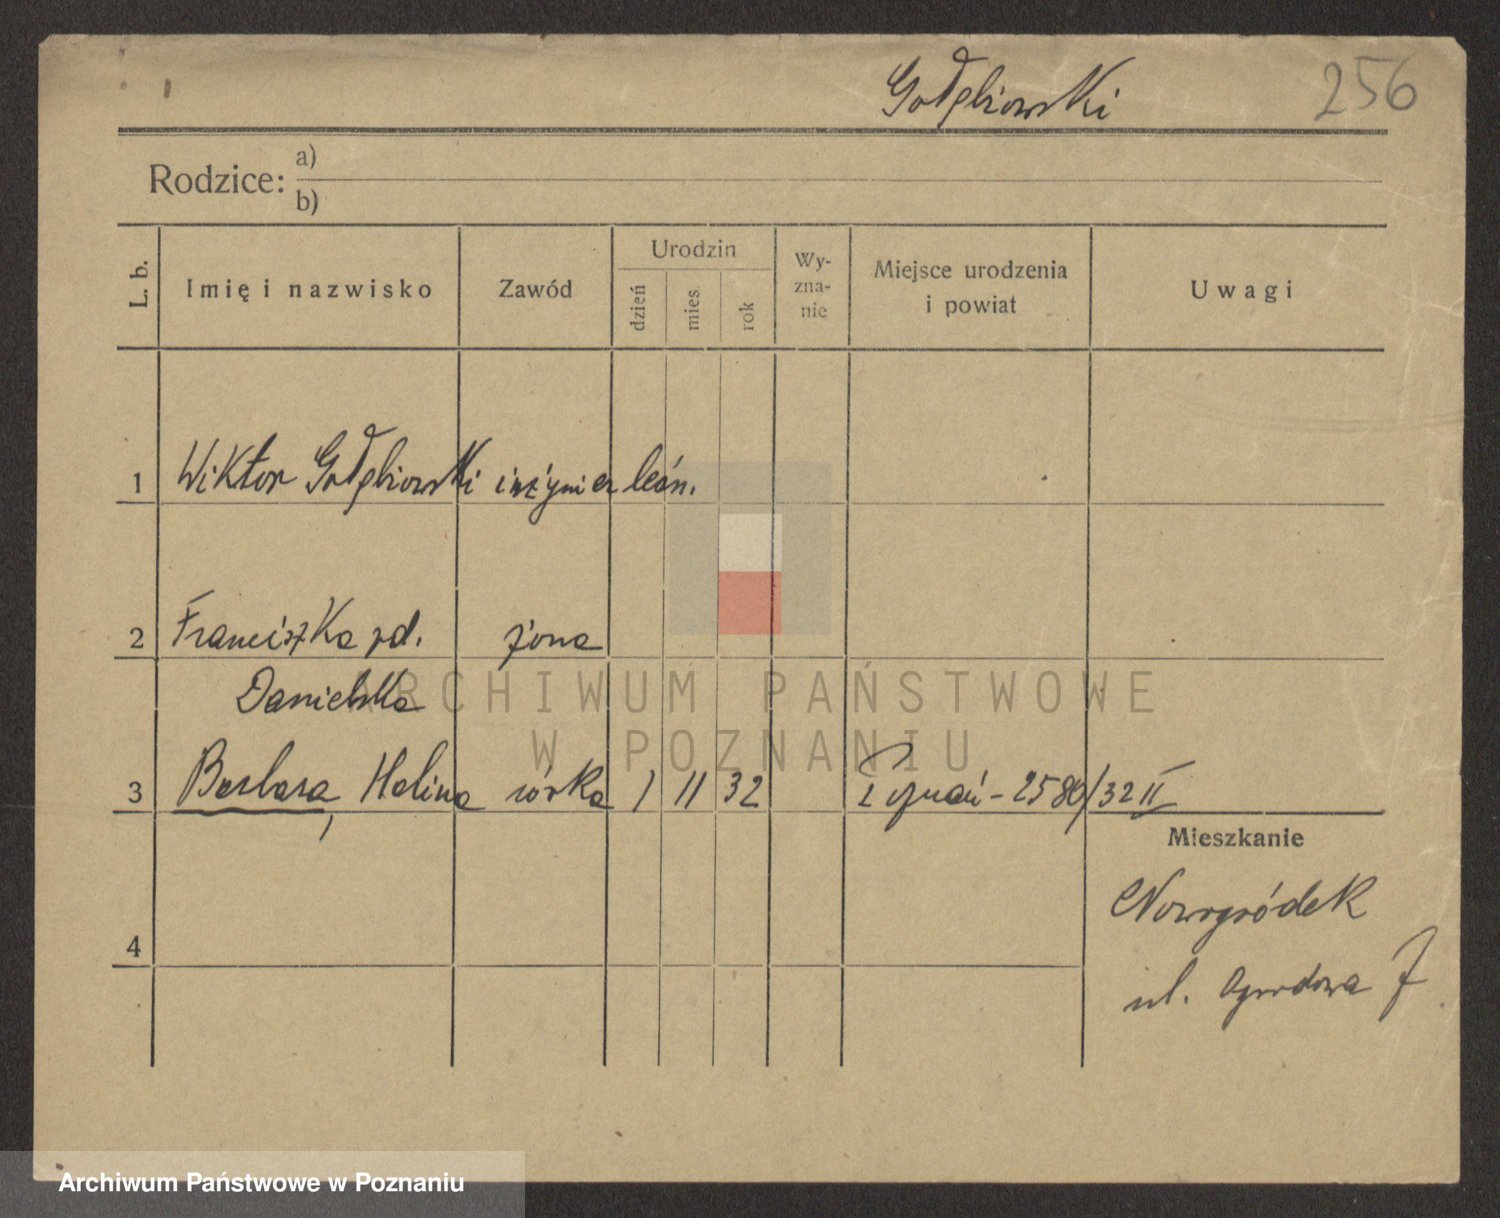 Gołębiowski 256
Rodzice: a)
b)
L. b. Imię i nazwisko Zawód Urodzin dzień mies. rok Wy-zna-nie Miejsce urodzenia i powiat Uwagi
1 Wiktor Gołębiowski inżynier leśn.
2 Franciszka zd. żona
Danielska
ARCHIWUM PAŃSTWOWE
W POZNANIU
3 Barbara, Halina córka 1 11 32 Poznań - 2580/32 II
Mieszkanie
Nowogródek
4
ul. Ogrodowa 7
Archiwum Państwowe w Poznaniu